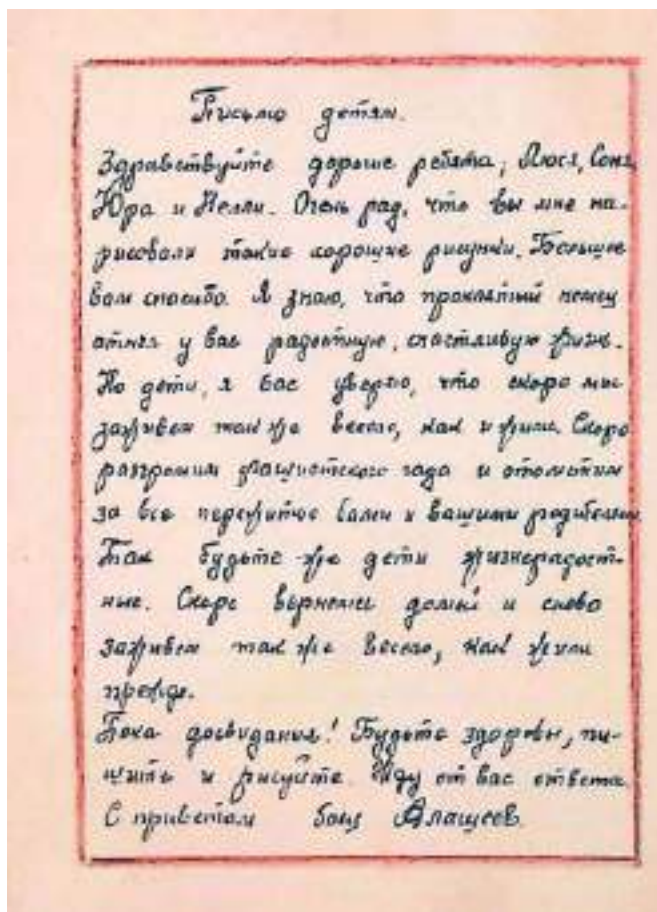 Письмо детям.
Здравствуйте дорогие ребята, Люся, Соня,
Юра и Нелли. Очень рад, что вы мне на-
рисовали такие хорошие рисунки. Большое
вам спасибо. Я знаю, что проклятый немец
отнял у вас радостную, счастливую жизнь.
Но дети, я вас уверяю, что скоро мы
заживем так же весело, как и жили. Скоро
разгромим фашистского гада и отомстим
за все пережитое вами и вашими родителями.
Так будьте же дети жизнерадост-
ные. Скоро вернемся домой и снова
заживем так же весело, как жили
прежде.
Пока досвидания! Будьте здоровы, пи-
шите и рисуйте. Жду от вас ответа.
С приветом боец Алащеев.